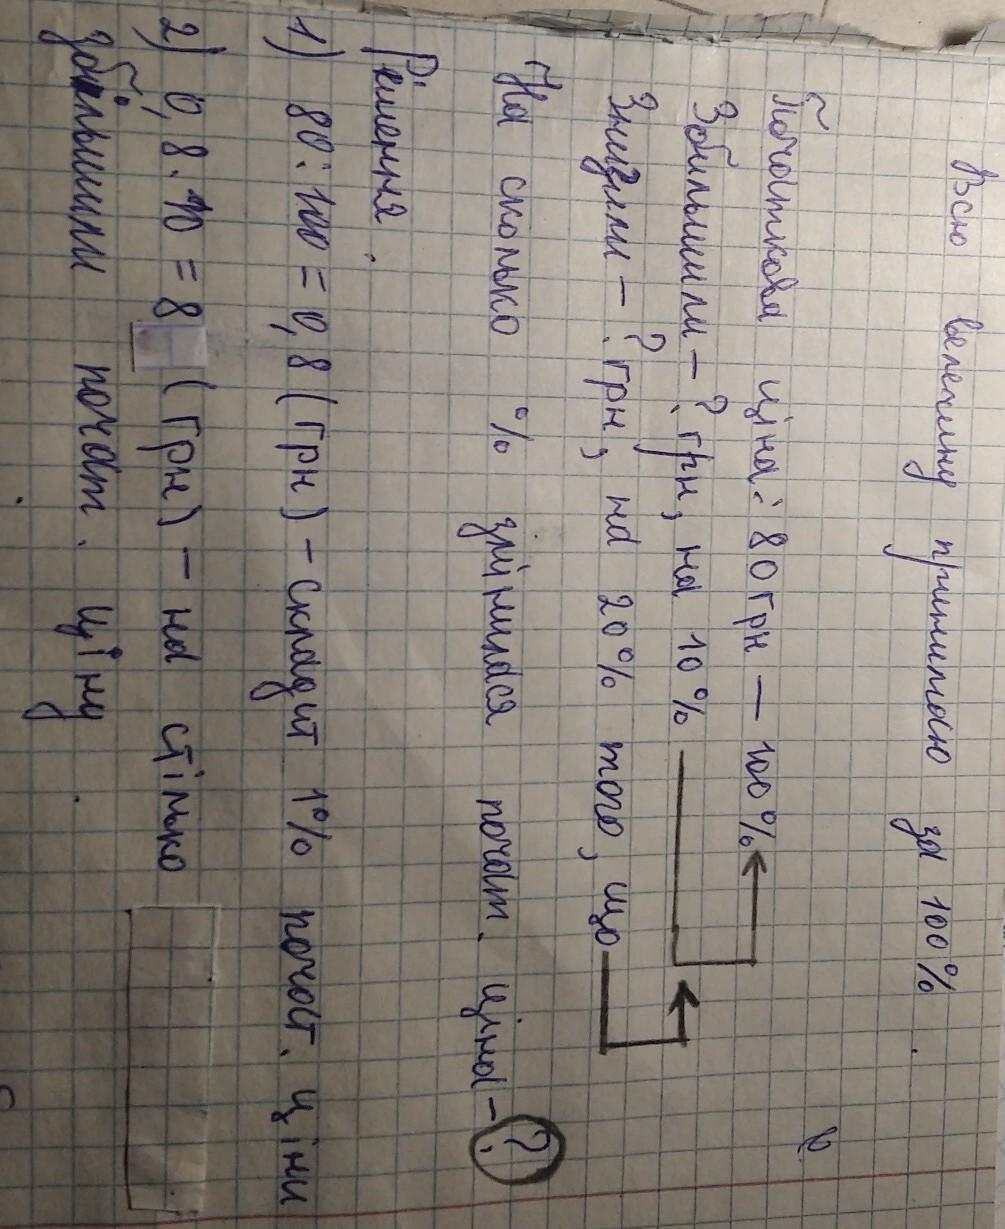 Всю величину принимаю за 100%
Початкова ціна: 80 грн — 100%
Збільшили - ? грн, на 10%
Знизили - ? грн, на 20% того, що
На сколько % змінилася почат. ціна - ?
Рішення.
1) 80:100 = 0,8 (грн) - складит 1% почат. ціни
2) 0,8·10 = 8 (грн) - на стілько
збільшили почат. ціну